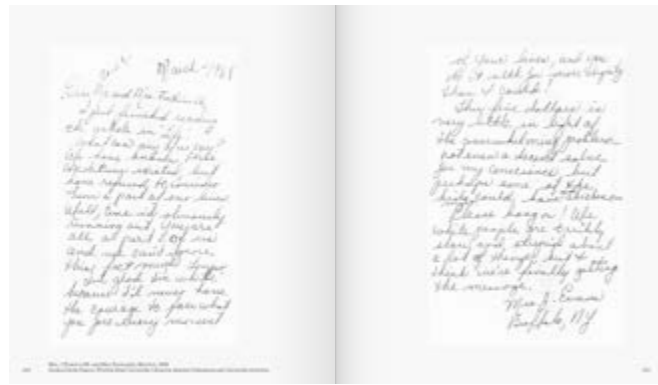 March 1968
Dear Mr and Mrs Fontenelle,
I just finished reading
the article in Life.
What can any of us say?
We have known these
conditions existed but
have refused to consider
them a part of our lives
Well, time is obviously
running out. You are
all a part of us
and we can't ignore
this fact much longer
I'm glad I'm white
because I'd never have
the courage to face what
you face every moment
of your lives, and you
do it with far more dignity
than I could!
This five dollars is
very little in light of
the overwhelming problem
not even a decent salve
for my conscience, but
perhaps some of the
kids could have
Please hang on! We
white people are terribly
slow and stupid about
a lot of things but I
think we're finally getting
the message.
Mrs. J. Evans
Buffalo, NY